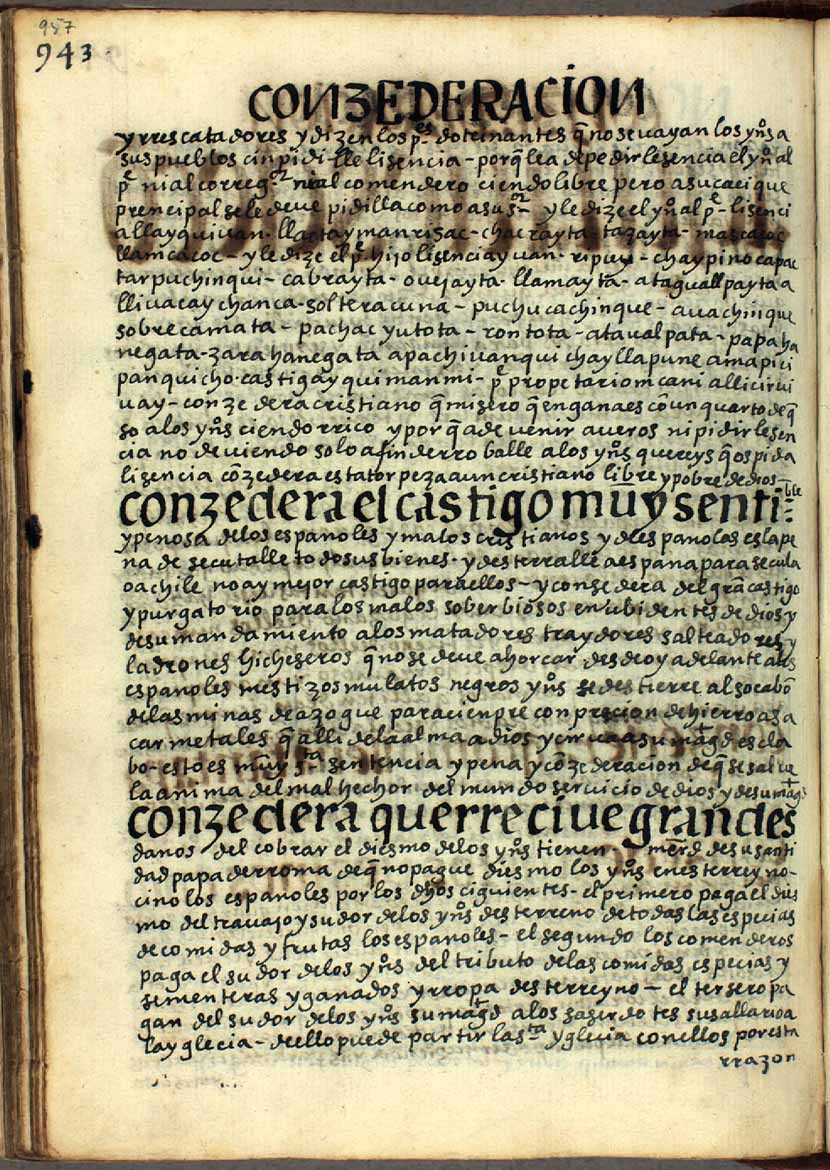 957
943
CONZEDERACION
y rrescatadores y dizen los p.es dotrinantes q̃ no se uayan los yn͂s a
sus pueblos cin pidille lisencia - porq̃ lea de pedir lesencia el yn͂ al
p.e ni al correg.or ni al comendero ciendo libre pero a su caci que
prencipal se le deue pidilla como a su s.or - y le dize el yn͂ al p.e - lisenci
allayquiuan - llactayman risac - chacrayta - uazayta - mascasac
llamcacoc - y le dize el p.e hijo lisencia y uan - ripuy - chaypinocapac
tarpuchinqui - cabrayta - ouejayta - llamayta - ataguallpayta a
lliuacaychanca - solteracuna - puchucachinque - auachinque
sobrecamata - pachac yutota - ron tota - ataualpata - papa ha
negata - zara hanegata apachiuanqui chayllapune ama pici
panquicho - castigayquiman mi - p.e propetariom cani alli cirui
uay - conzedera cristiano q̃ misero q̃ engana es cõ un quarto de q̃
so a los yn͂s ciendo rrico y por q̃ a de uenir a ueros ni pidir lesen
cia no deuiendo solo a fin de rroballe a los yn͂s quereys q̃ os pida
lisencia cõzedera esta torpeza a un cristiano libre y pobre de dios -
conzedera el castigo muy senti-ble
y penosa de los espanoles y malos cristianos y dles panolas es la pe
na de secutalle todo sus bienes - y desterralle a espana para secula
o a chile no ay mejor castigo para ellos - y consedera del grã castigo
y purgatorio para los malos soberbiosos enubidentes de dios y
de su mandamiento a los matadores traydores salteadores y
ladrones hicheseros q̃ no se deue ahorcar desde oy adelante a los
espanoles mestizos mulatos negros yn͂s se destierre al socabõ
de las minas de azogue para cienpre con precion de hierro a sa
car metales q̃ alli dela alma a dios y cirua a su mag.d escla
bo - esto es muy s.ta sentencia y pena y cõzederacion de q̃ se salue
la anima del malhechor del mundo seruicio de dios y de su mag.d
conzedera que rreciue grandes
danos del cobrar el diesmo de los yn͂s tienen - merd de su santi
dad papa de rroma de q̃ no pague diesmo los yn͂s en este rreyno -
cino los espanoles por los dhos ciguientes - el primero paga el dies
mo del trauajo y sudor de los yn͂s deste rreno de todas las especias
de comidas y frutas los espanoles - el segundo los comenderos
paga el sudor de los yn͂s del tributo de las comidas especias y
sementeras y ganados y rropa deste rreyno - el tersero pa
gan del sudor de los yn͂s su mag.d a los saserdotes su sallario a
la yglecia - de ello puede partir la s.ta yglecia con ellos por esta
rrazon